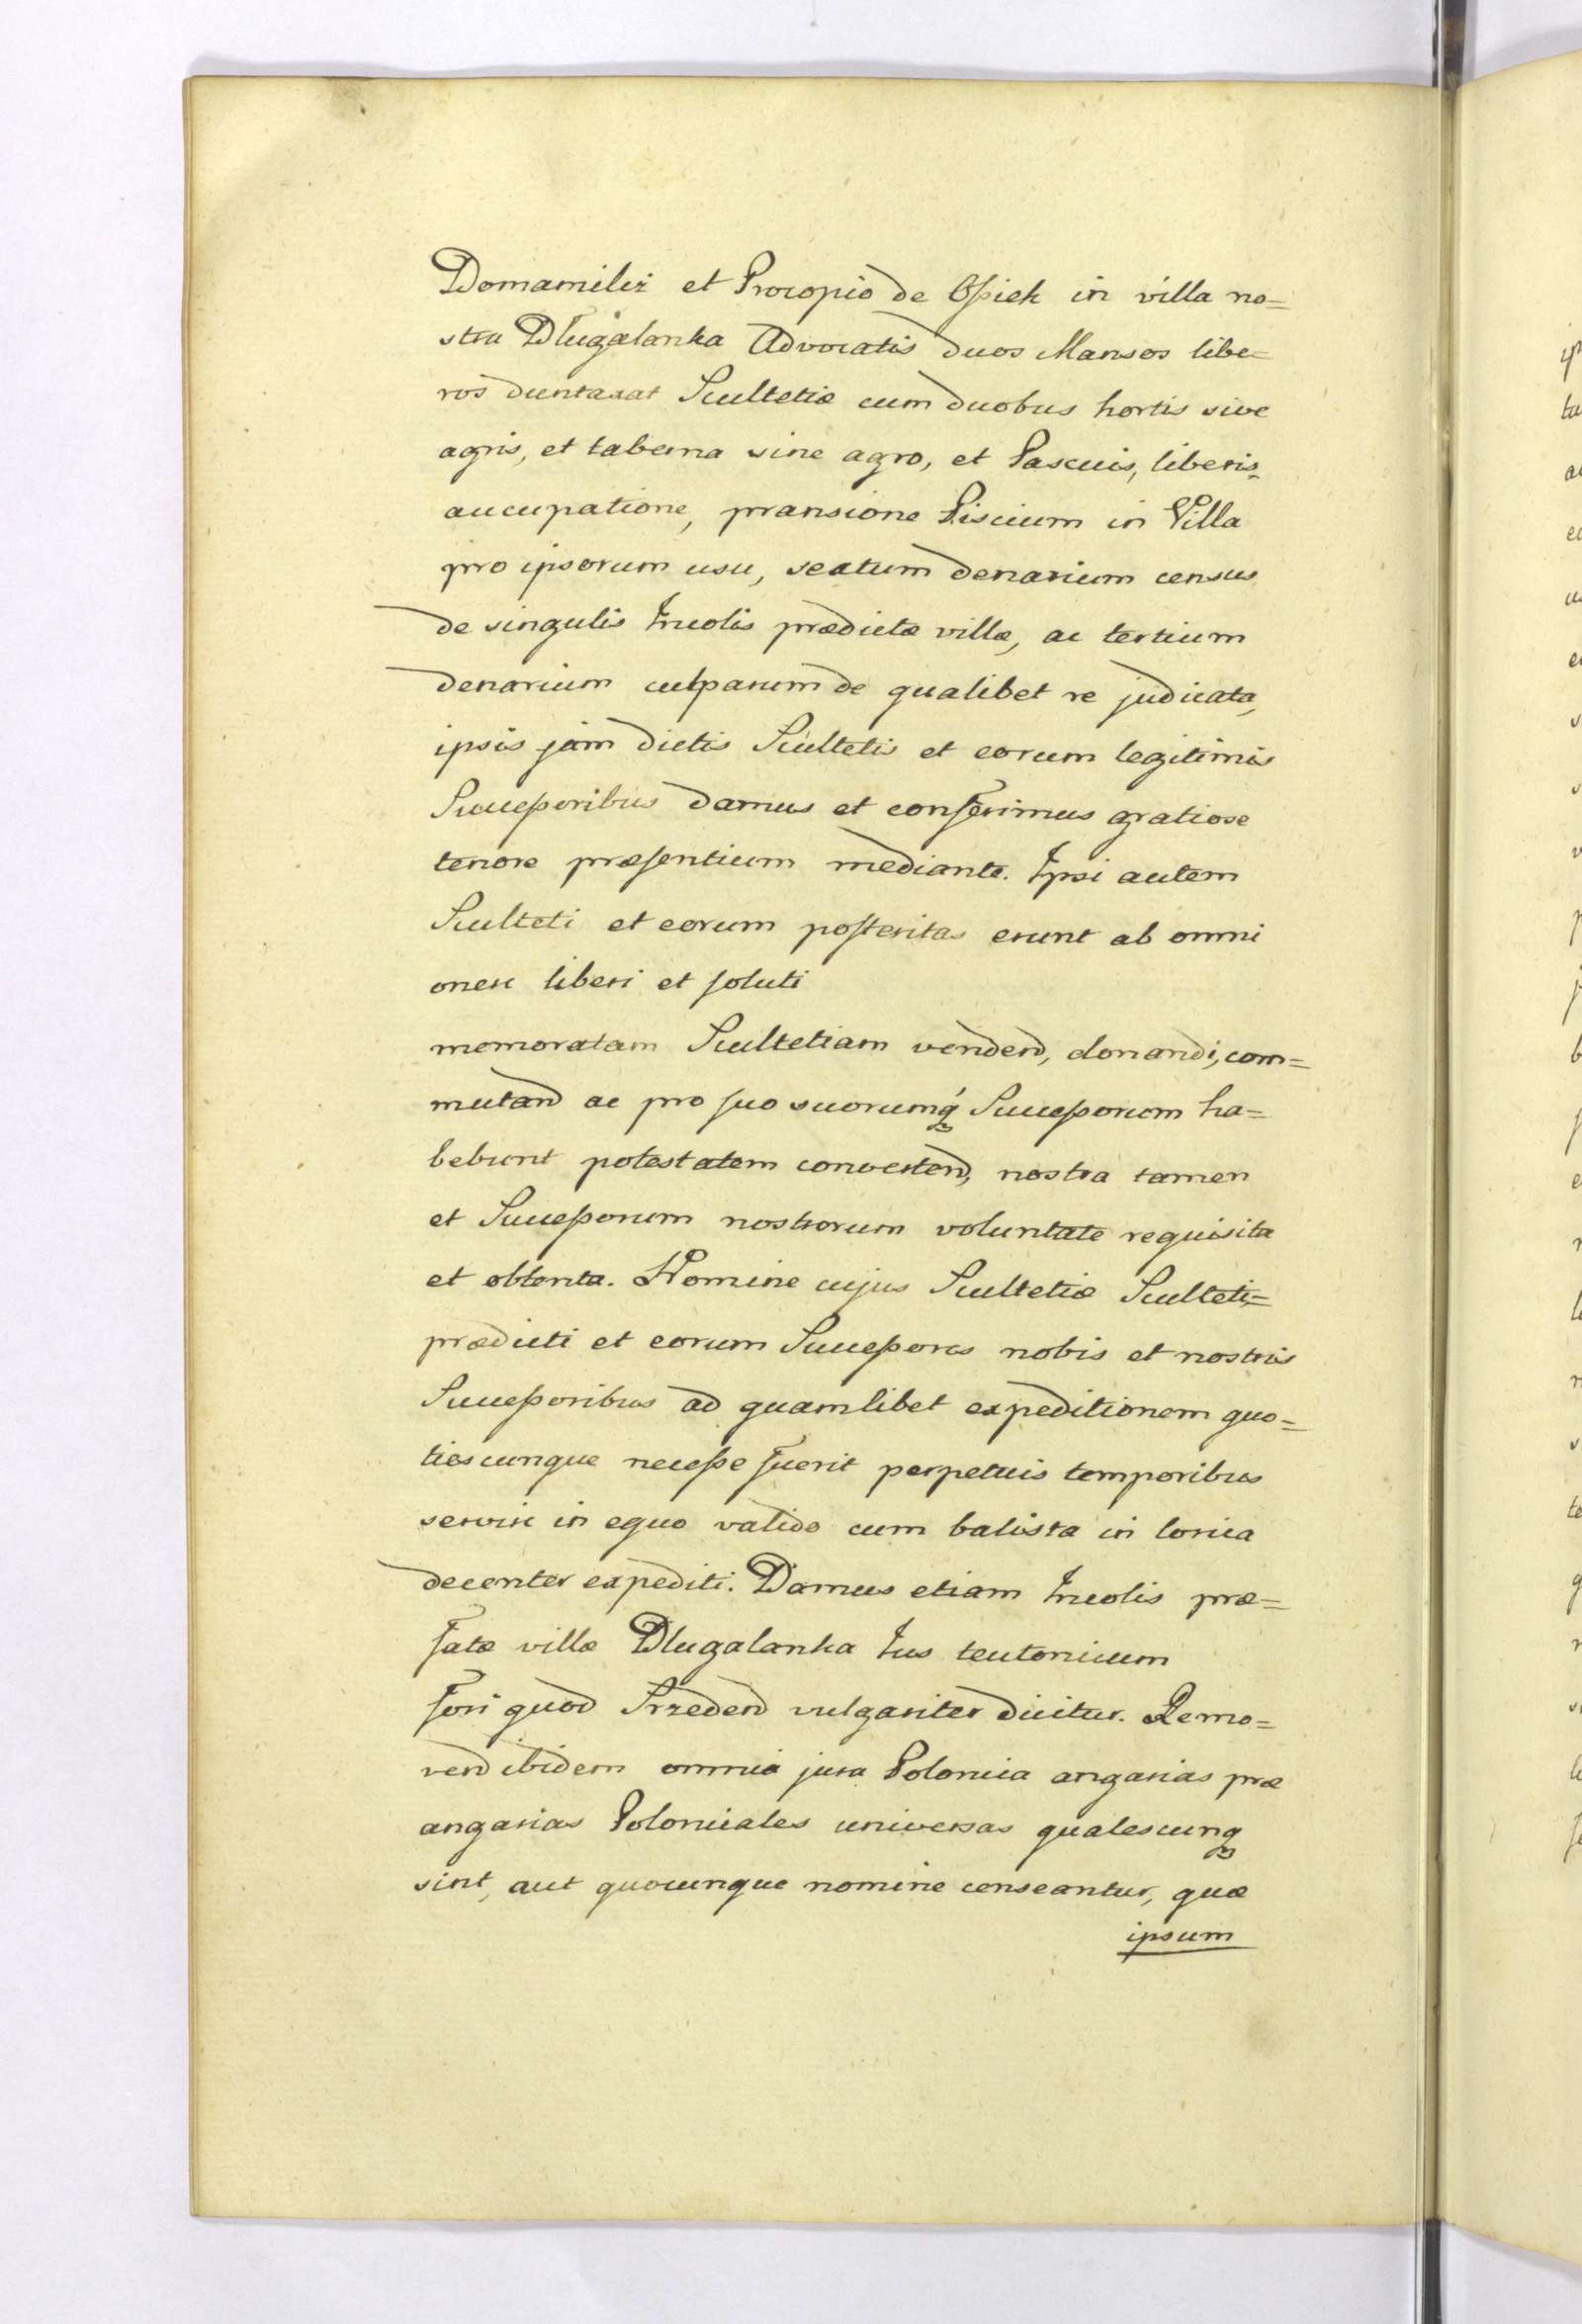 Domamilir et Procopio de Ossiek in villa no=
stra Dlugalanka Advocatis duos Mansos libe=
ros duntaxat Scultetiæ cum duobus hortis sive
agris, et taberna sine agro, et Pascuis, liberis,
aucupatione, pransione Piscium in Villa
pro ipsorum usu, sextum denarium census
de singulis Incolis prædictæ villæ, ac tertium
denarium culparum de qualibet re judicata,
ipsis jam dictis Scultetis et eorum legitimis
Successoribus damus et conferimus gratiose
tenore præsentium mediante. Ipsi autem
Sculteti et eorum posteritas erunt ab omni
onere liberi et soluti
memoratam Scultetiam vendend, donandi, com=
mutand ac pro suo suorumq́ Successorum ha=
bebunt potestatem convertend, nostra tamen
et Successorum nostrorum voluntate requisita
et obtenta. Nomine cujus Scultetiæ Sculteti=
prædicti et eorum Successores nobis et nostris
Successoribus ad quamlibet expeditionem quo=
tiescunque necesse fuerit perpetuis temporibus
servire in equo valido cum balista in lorica
decenter expediti. Damus etiam Incolis præ=
fatæ villæ Dlugalanka Jus teutonicum
fori quod Srzedend vulgariter dicitur. Remo=
vend ibidem omnia jura Polonica angarias præ
angarias Polonicales universas qualescunq
sint, aut quocunque nomine censeantur, quæ
ipsum